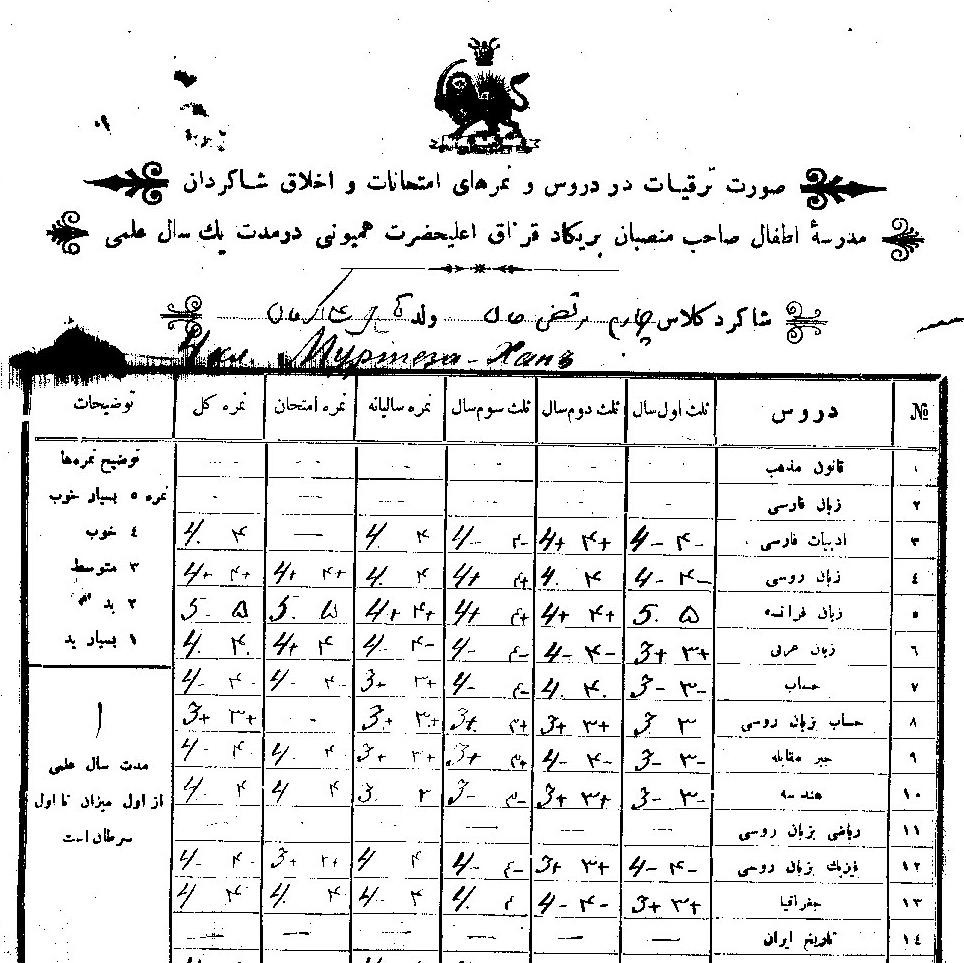 صورت ترقیات در دروس و نمرهای امتحانات و اخلاق شاکردان
مدرسهٔ اطفال صاحب منصبان بریکاد قزاق اعلیحضرت همیونی در مدت یك سال علمی
شاکرد کلاس چهارم مرتضی خان ولد
4 кл. Муртеза-Ханъ
№ دروس ثلث اول سال ثلث دوم سال ثلث سوم سال نمره سالیانه نمره امتحان نمره کل توضیحات
۱ قانون مذهب - - - - - -
۲ زبان فارسی - - - - - -
۳ ادبیات فارسی ۴- 4- ۴+ 4+ ۴- 4- ۴ 4 — ۴ 4.
۴ زبان روسی ۴- 4- ۴ 4. ۴+ 4+ ۴ 4. ۴+ 4+ ۴+ 4+
۵ زبان فرانسه ۵ 5. ۴+ 4+ ۴+ 4+ ۴+ 4+ ۵ 5. ۵ 5-
۶ زبان عربی ۳+ 3+ ۴- 4- ۴- 4- ۴- 4- ۴ 4+ ۴. 4.
۷ حساب ۳- 3- ۴. 4. ۴- 4- ۳+ 3+ ۴- 4- ۴- 4-
۸ حساب بزبان روسی ۳ 3 ۳+ 3+ ۳+ 3+ ۳+ 3+ - ۳+ 3+
۹ جبر مقابله ۳- 3- ۴- 4- ۳+ 3+ ۳+ 3+ ۴ 4 ۴- 4-
۱۰ هندسه ۳- 3- ۳+ 3+ ۳- 3- ۳ 3. ۴ 4 ۴ 4.
۱۱ ریاضی بزبان روسی — — — — - -
۱۲ فیزیك بزبان روسی ۴- 4- ۳+ 3+ ۴- 4- ۴ 4 ۳+ 3+ ۴- 4-
۱۳ جغرافیا ۳+ 3+ ۴- 4- ۴ 4. ۴ 4- ۴ 4. ۴ 4
۱۴ تاریخ ایران — — — — — —
توضیح نمره‌ها
نمره ۵ بسیار خوب
٤ خوب
۳ متوسط
۲ بد
۱ بسیار بد
مدت سال علمی
از اول میزان تا اول
سرطان است